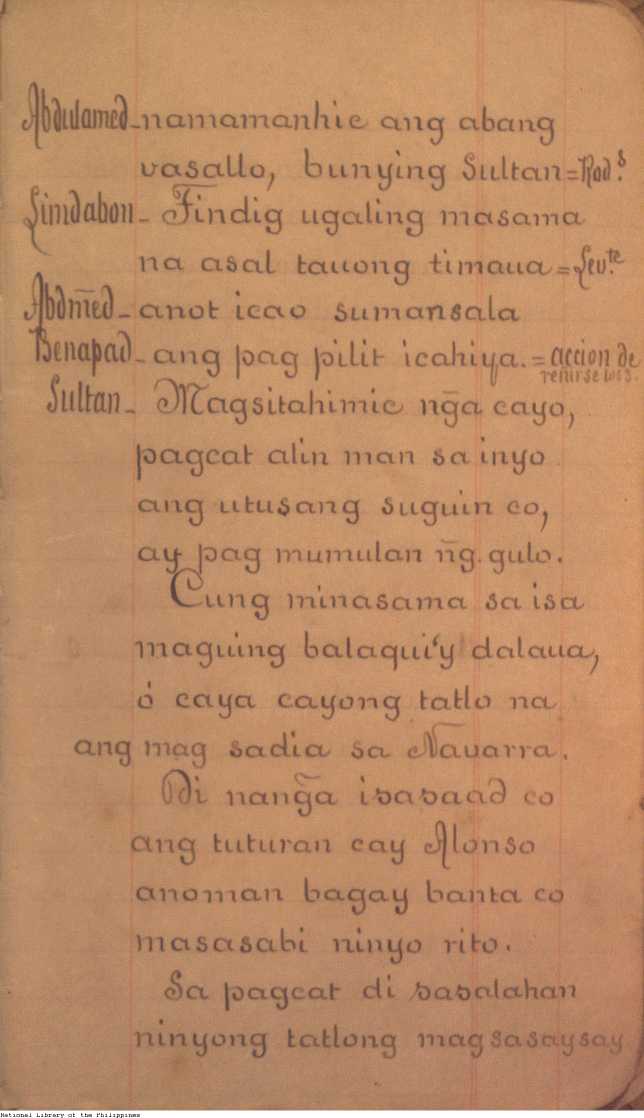 Abdulamed_namamanhic ang abang
vasallo, bunying Sultan=Rod.s
Limdabon_ Tindig ugaling masama
na asal tauong timaua=Lev.te
Abdm̃ed_anot icao sumansala
Benapad_ang pag pilit icahiya.=accion de
reñirse los 3.
Sultan_ Magsitahimic ng̃a cayo,
pagcat alin man sa inyo
ang utusang suguin co,
ay pag mumulan ñg. gulo.
Cung minasama sa isa
maguing balaqui'y dalaua,
ó caya cayong tatlo na
ang mag sadia sa Navarra.
Di nang̃a isasaad co
ang tuturan cay Alonso
anoman bagay banta co
masasabi ninyo rito.
Sa pagcat di sasalahan
ninyong tatlong magsasaysay
National Library of the Philippines